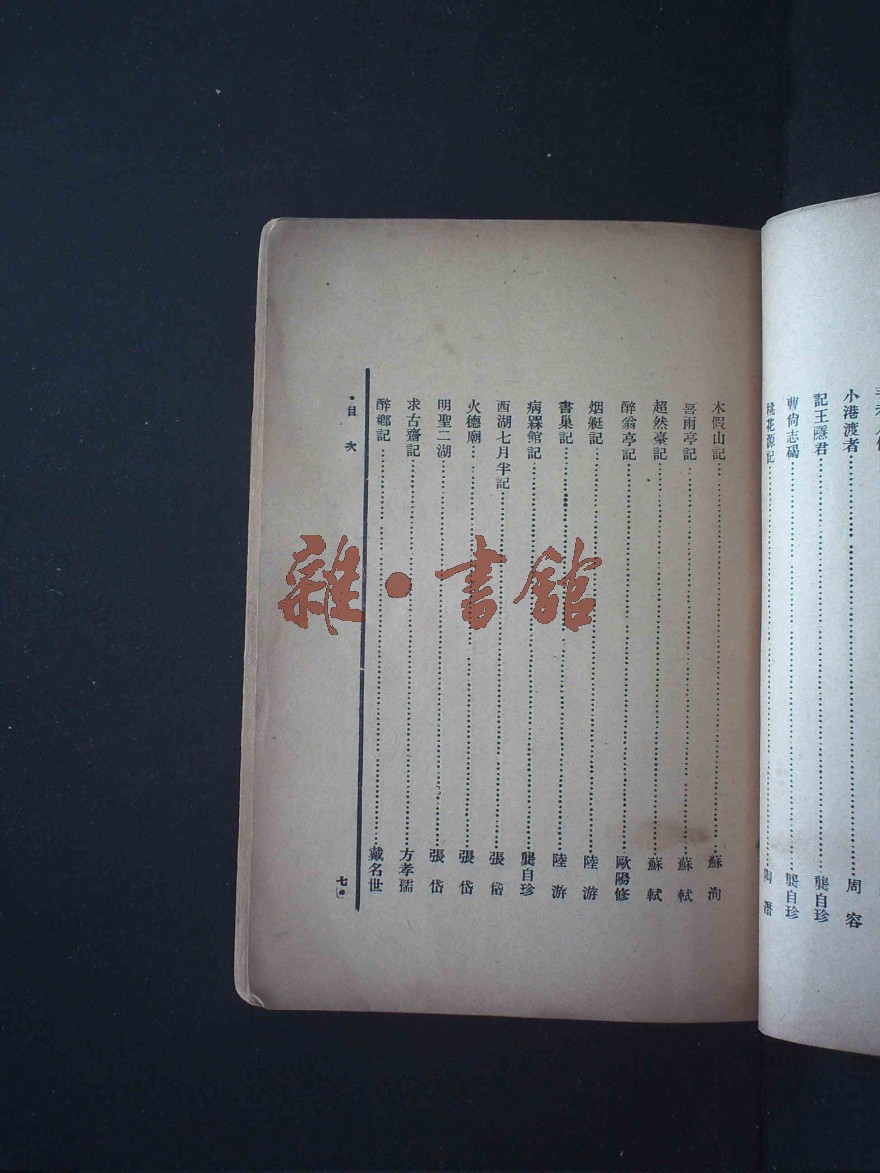 小港渡者……周容
記王隱君……龔自珍
曹尙志碣……龔自珍
桃花源記……陶潛
木假山記……蘇洵
喜雨亭記……蘇軾
超然臺記……蘇軾
醉翁亭記……歐陽修
烟艇記……陸游
書巢記……陸游
病梅館記……龔自珍
西湖七月半記……張岱
火德廟……張岱
明聖二湖……張岱
求古齋記……方孝孺
醉鄉記……戴名世
目次
七
雜·書館